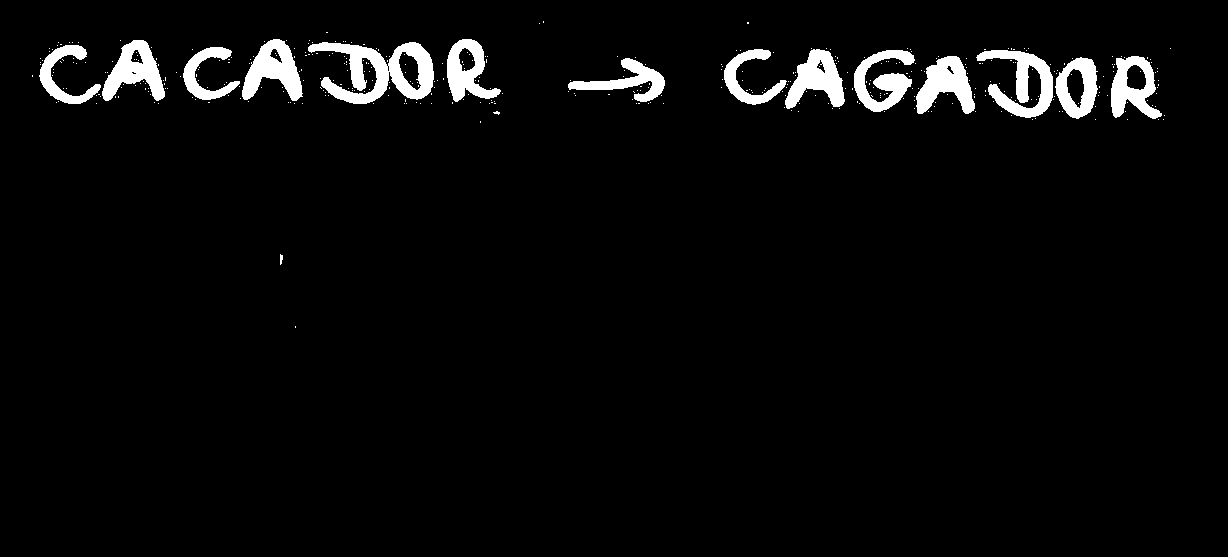 CACADOR → CAGADOR